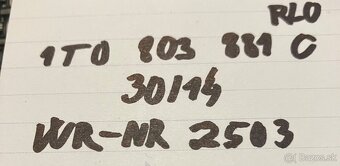 RLO
1T0 803 881 C
30/14
WR-NR 2503
bazos.sk